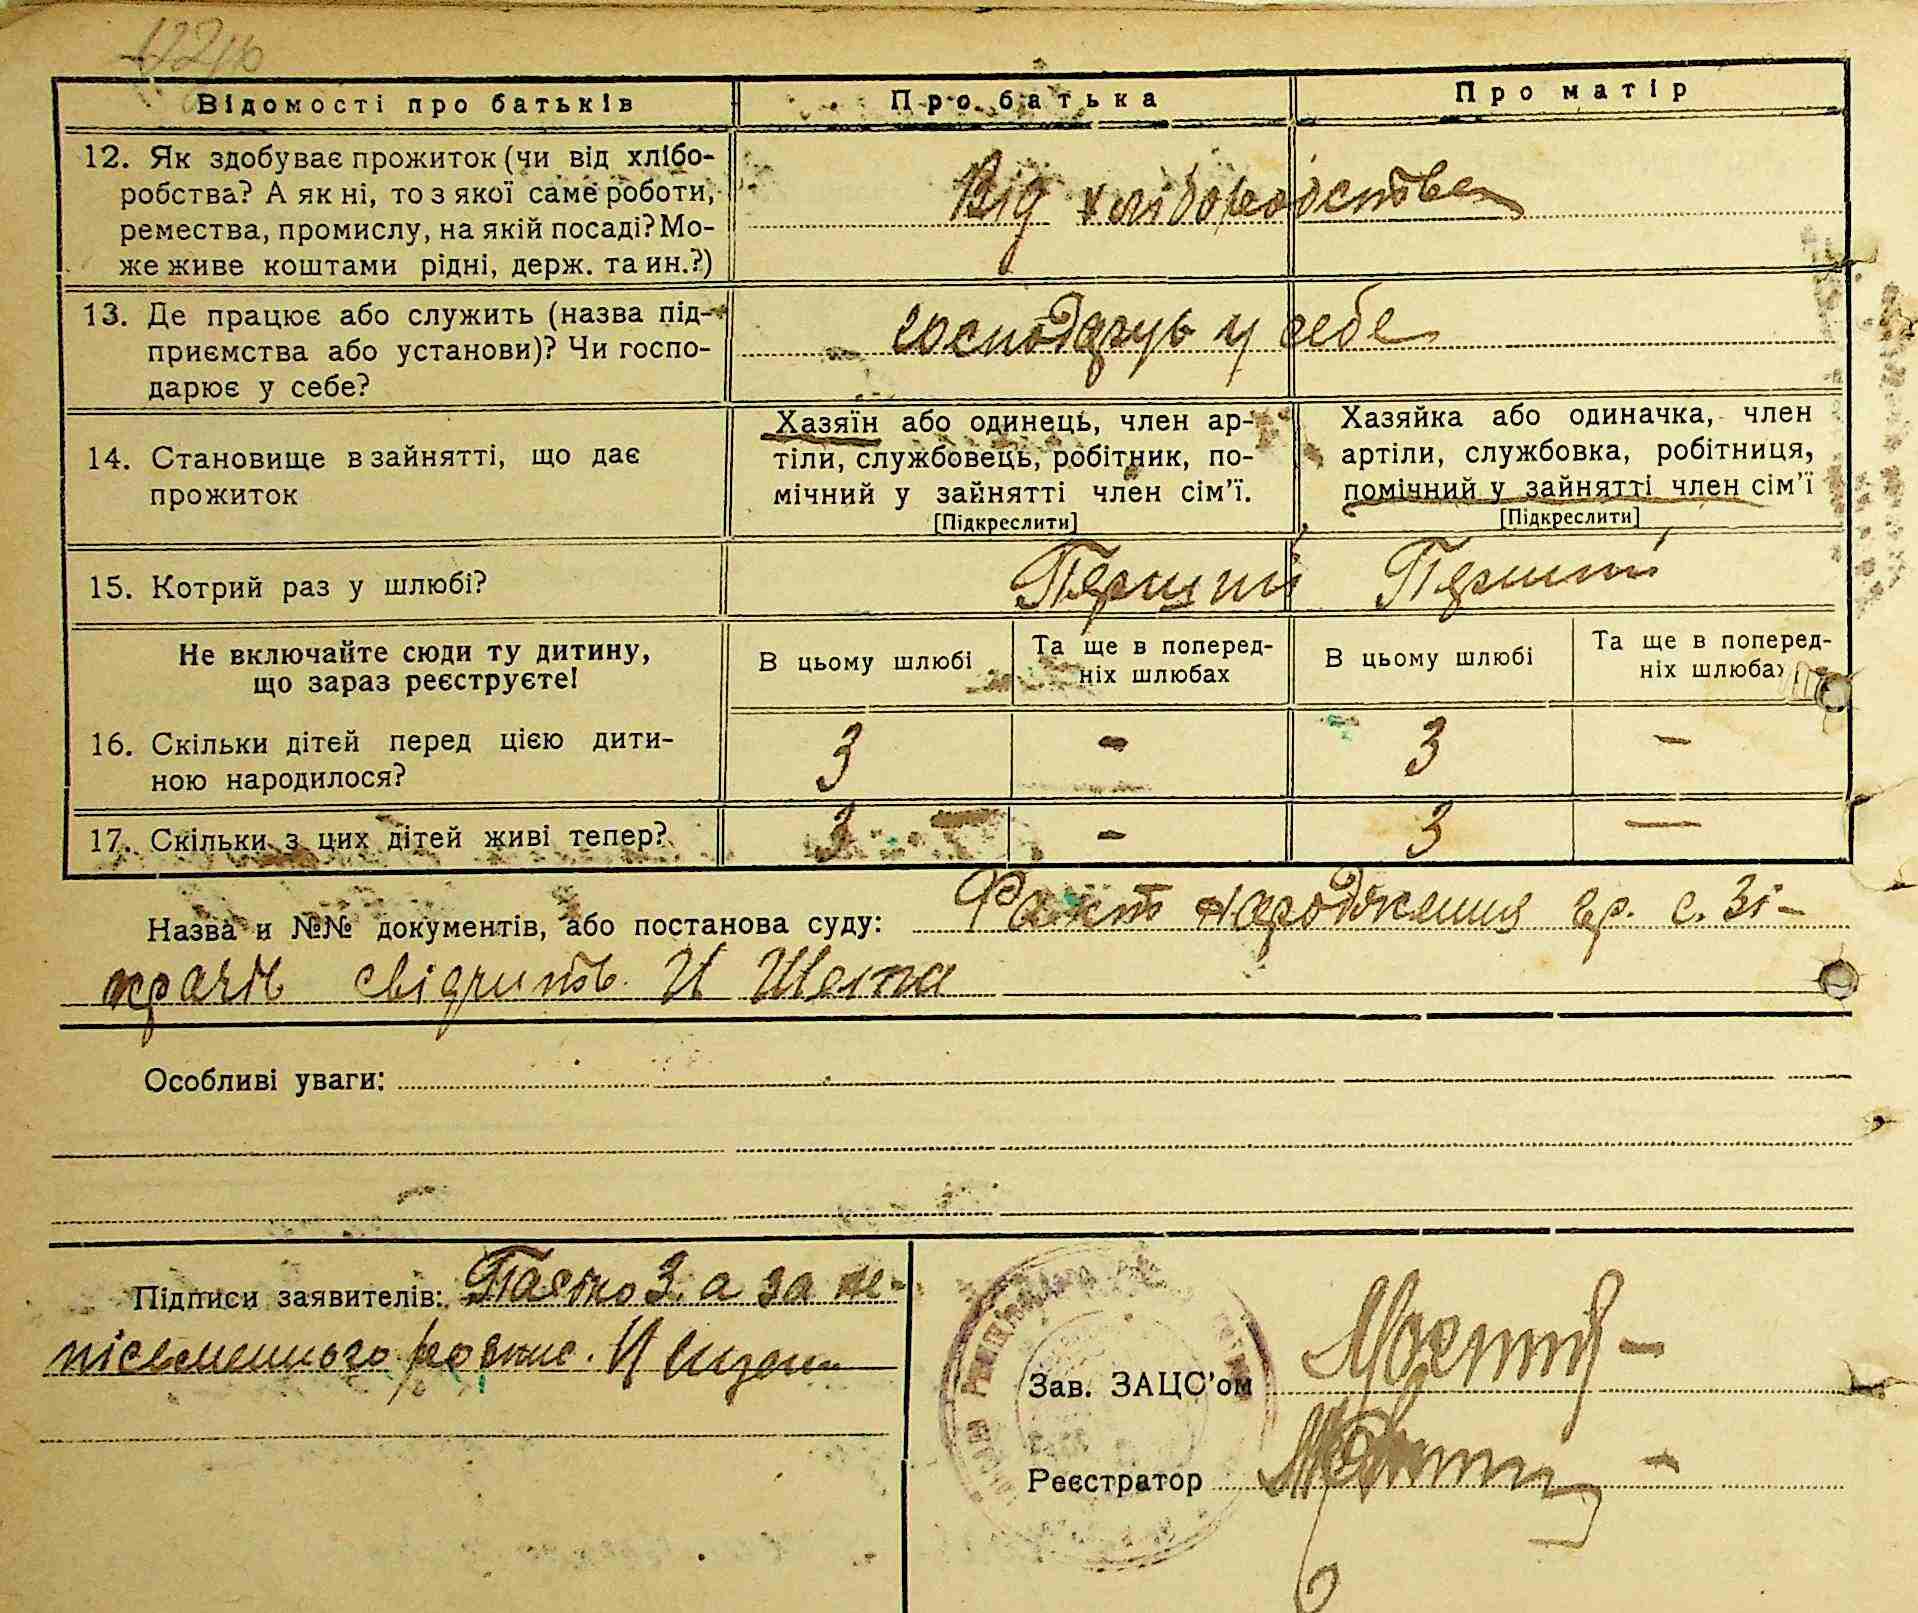 Відомості про батьків
Про батька
Про матір
12. Як здобуває прожиток (чи від хлібо-
робства? А як ні, то з якої саме роботи,
ремества, промислу, на якій посаді? Мо-
же живе коштами рідні, держ. та ин.?)
Від хліборобства
13. Де працює або служить (назва під-
приємства або установи)? Чи госпо-
дарює у себе?
господарує у себе
14. Становище в зайнятті, що дає
прожиток
Хазяїн або одинець, член ар-
тіли, службовець, робітник, по-
мічний у зайнятті член сім'ї.
[Підкреслити]
Хазяйка або одиначка, член
артіли, службовка, робітниця,
помічний у зайнятті член сім'ї
[Підкреслити]
15. Котрий раз у шлюбі?
Перший Перший
Не включайте сюди ту дитину,
що зараз реєструєте!
В цьому шлюбі
Та ще в поперед-
ніх шлюбах
В цьому шлюбі
Та ще в поперед-
ніх шлюбах
16. Скільки дітей перед цією дити-
ною народилося?
3 - 3 -
17. Скільки з цих дітей живі тепер?
3 - 3 -
Назва и №№ документів, або постанова суду: Факт народження гр. с. Зі-
свідчить И
Особливі уваги:
Підписи заявителів: а за не-
письменного роспис.
Зав. ЗАЦС'ом
Реєстратор